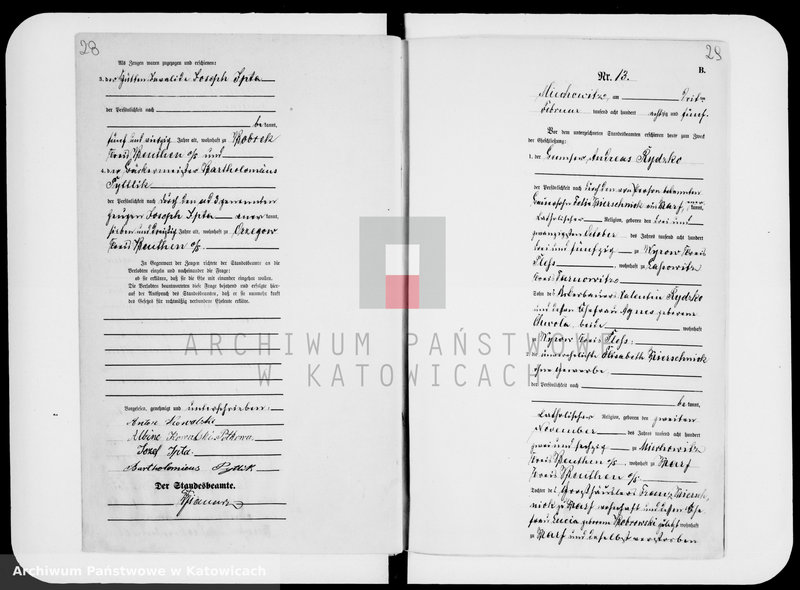 28
Als Zeugen waren zugezogen und erschienen:
3. der Hütten Invalide Joseph Spta
der Persönlichkeit nach
be kannt,
fünf und vierzig Jahre alt, wohnhaft zu Bobrek
Kreis Beuthen o/s und
4. der Häckermeister Bartholomäus
Pyttlik
der Persönlichkeit nach durch den ad 3 genannten
Zeugen Joseph Spta aner kannt,
sieben und dreißig Jahre alt, wohnhaft zu Orzegow
Kreis Beuthen o/s.
In Gegenwart der Zeugen richtete der Standesbeamte an die
Verlobten einzeln und nacheinander die Frage:
ob sie erklären, daß sie die Ehe mit einander eingehen wollen.
Die Verlobten beantworteten diese Frage bejahend und erfolgte hier-
auf der Ausspruch des Standesbeamten, daß er sie nunmehr kraft
des Gesetzes für rechtmäßig verbundene Eheleute erkläre.
Vorgelesen, genehmigt und unterschrieben:
Anton Kowalski
Albine Kowalski
Jozef Spta
Bartholomäus Pyttlik
Der Standesbeamte.
29
B.
Nr. 13.
Miechowitz, am Drit-
Februar tausend acht hundert achtzig und fünf.
Vor dem unterzeichneten Standesbeamten erschienen heute zum Zweck
der Eheschließung:
1. der Andreas Kydzko
der Persönlichkeit nach durch den von Person bekannten
Felix Kierschniok aus Karf, kannt,
katholischer Religion, geboren den drei und
zwanzigsten October des Jahres tausend acht hundert
drei und fünfzig zu Kyrow Kreis
Pleß, wohnhaft zu Lassowitz
Kreis Tarnowitz
Sohn des Valentin Kydzko
und dessen Ehefrau Agnes geborene
Chwola, beide wohnhaft
zu Kyrow Kreis Pleß:
2. die unverehelichte Elisabeth Kierschniok
ohne Gewerbe
der Persönlichkeit nach
be kannt,
katholischer Religion, geboren den zweiten
November des Jahres tausend acht hundert
zwei und sechzig zu Miechowitz
Kreis Beuthen o/s, wohnhaft zu Karf
Kreis Beuthen o/s
Tochter des Großhäuslers Franz Kiersch-
niok zu Karf wohnhaft und dessen Ehe
frau Lucia geborene Bobrowski zuletzt wohnhaft
zu Karf und daselbst verstorben
ARCHIWUM PAŃSTWOWE
W KATOWICACH
Archiwum Państwowe w Katowicach